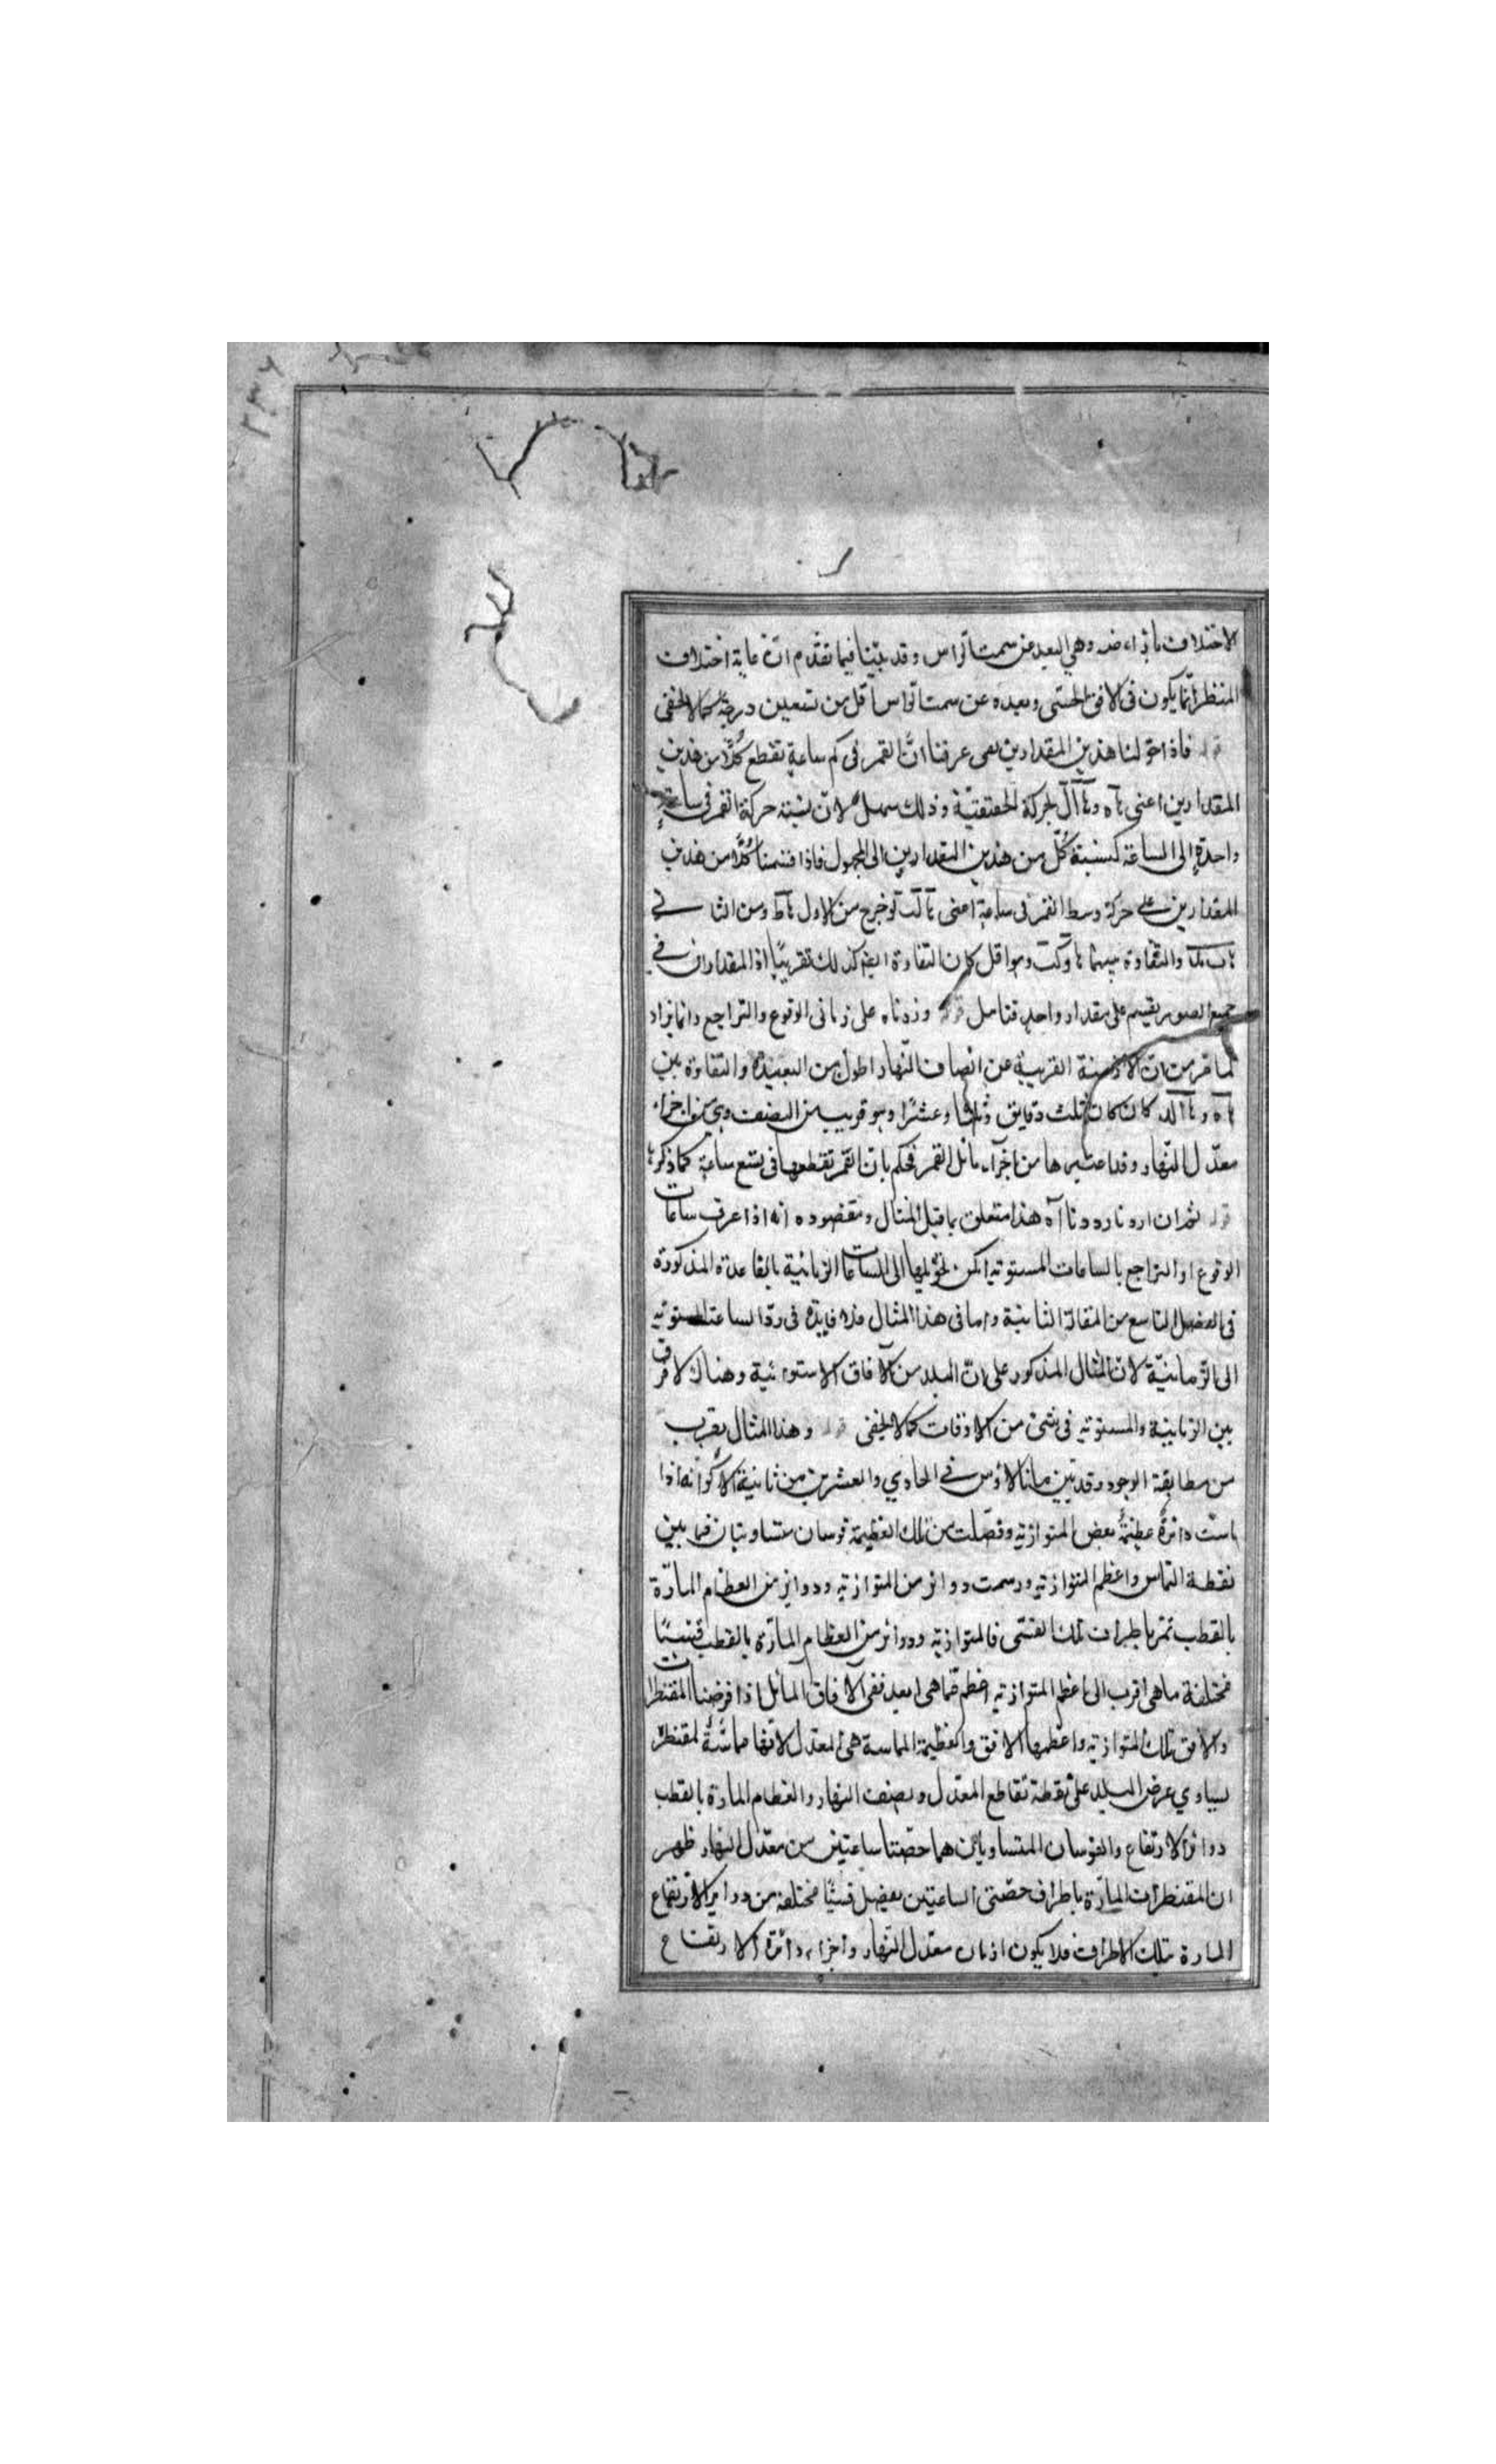 الاختلاف بازاء ضه وهي البعد عن سمت الراس وقد بيّنا فيما تقدّم انّ غاية اختلاف
المنظر انّما يكون في الافق الحسّي وبعده عن سمت الراس اقل من تسعين درجة كما لا يخفى
قوله فاذا حوّلنا هذين المقدارين يعني عرفنا انّ القمر في كم ساعة تقطع كُلًّا من هذين
المقدارين اعني وذلك سهل لانّ نسبة حركة القمر في ساعة
واحدة إلى الساعة كنسبة كُلّ من هذين المقدارين الى المجهول فاذا قسمنا كُلًّا من هذين
المقدارين على حركة وسط القمر في ساعة اعني خرج من الاول ومن الثاني
والتفاوة بينهما وهو اقل كان التفاوة ايضا كذلك تقريبًا اذ المقداران في
جميع الصور يقسم على مقدار واحد فتامل قوله وزدناه على زماني الوقوع والتراجع وانما يزاد
لما مر من ان الازمنة القريبة عن انصاف النّهار اطول من البعيدة والتفاوة بين
كان ثلث دقايق وعشرًا وهو قريب من النصف وهي من اجزاء
معدّل النّهار وقد اعتبرها من اجزآء مائل القمر فحكم بانّ القمر تقطعها في تسع ساعة كما ذكر
قوله ثم ان اردنا رددنا آه هذا متعلق بما قبل المثال ومقصوده انه اذا عرف ساعات
الوقوع او التراجع بالساعات المستوتيه امكن تحويلها الى الساعات الزمانية بالقاعدة المذكورة
في الفصل التاسع من المقالة الثانية واما في هذا المثال فلا فايدة في ردّ الساعة المستوتيه
الى الزّمانيّة لانّ المثال المذكور على انّ البلد من الآفاق الاستوائية وهناك لا فرق
بين الزمانية والمستوتيه في شئ من الاوقات كما لا يخفى قوله وهذا المثال يقرب
من مطابقة الوجود وقد تبين مانالاؤس في الحادي والعشرين من ثانية الاكر انه اذا
ماست دائرةٌ عظيمةٌ بعض المتوازتيه وفصّلت من تلك العظيمة قوسان متساويتان فيما بين
نقطة التماس واعظم المتوازتيه ورسمت دوائر من المتوازتيه ودوائر من العظام المارّة
بالقطب تمر باطراف تلك القسّى فالمتوازتيه ودوائر من العظام المارّة بالقطب قسيًّا
مختلفة ما هي اقرب الى اعظم المتوازتيه اعظم ممّا هي ابعد ففي الآفاق المائل اذا فرضنا المقنطرات
والافق تلك المتوازتيه واعظمها الافق والعظيمة المماسة هي المعدل لانّها مماسّة لمقنطرة
يساوي عرض البلد على نقطة تقاطع المعدّل ونصف النهار والعظام المارة بالقطب
دوائر الارتفاع والقوسان المتساويان هما حصّتا ساعتين من معدّل النهار ظهر
ان المقنطرات المارّة باطراف حصّتي الساعتين يفصل قسيًّا مختلفة من دواير الارتفاع
المارة بتلك الاطراف فلا يكون ازمان معدّل النّهار واجزاء دائرة الارتفاع